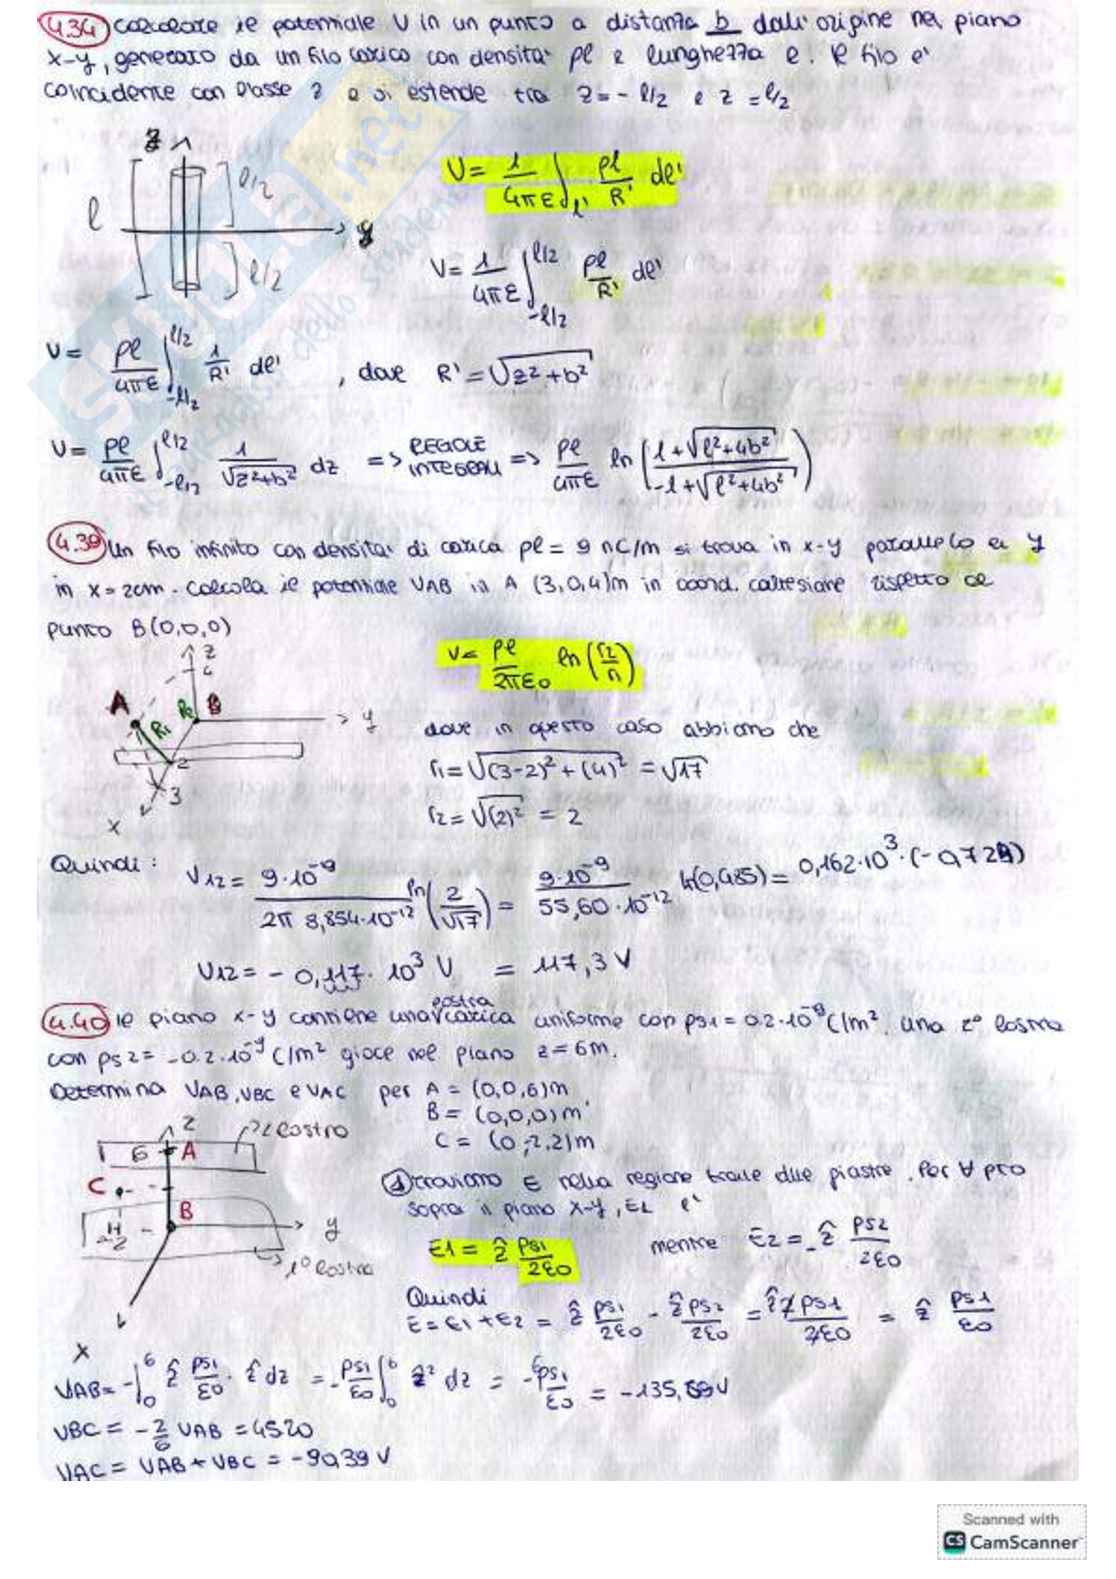 4.34 Calcolare il potenziale V in un punto a distanza b dall'origine nel piano
x-y, generato da un filo carico con densità ρl e lunghezza l. Il filo è
coincidente con l'asse z e si estende tra z=-l/2 e z=l/2
z
l
l/2
y
l/2
V= 1/4πε ∫l' ρl/R' dl'
V= 1/4πε ∫-l/2^l/2 ρl/R' dl'
V= ρl/4πε ∫-l/2^l/2 1/R' dl' , dove R'=√z²+b²
V= ρl/4πε ∫-l/2^l/2 1/√z²+b² dz => REGOLE INTEGRALI => ρl/4πε ln(l+√l²+4b² / -l+√l²+4b²)
4.39 Un filo infinito con densità di carica ρl= 9 nC/m si trova in x-y parallelo a y
in x=2cm. Calcola il potenziale VAB in A (3,0,4)m in coord. cartesiane rispetto al
punto B(0,0,0)
z
4
A
R1
R2
B
y
2
3
x
V= ρl/2πε0 ln(r2/r1)
dove in questo caso abbiamo che
r1=√(3-2)²+(4)² =√17
r2=√(2)² = 2
Quindi: V12= 9·10⁻⁹/2π 8,854·10⁻¹² ln(2/√17)= 9·10⁻⁹/55,60·10⁻¹² ln(0,485)= 0,162·10³·(-0,724)
V12= - 0,117·10³ V = 117,3 V
4.40 Il piano x-y contiene una lastra carica uniforme con ρs1=0.2·10⁻⁹C/m². una 2° lastra
con ρs2= -0.2·10⁻⁹ C/m² giace nel piano z=6m.
Determina VAB, VBC e VAC per A = (0,0,6)m
B= (0,0,0)m
C= (0,-2,2)m
z
2 lastra
6
A
C
B
-2
y
1° lastra
x
① Troviamo E nella regione tra le due piastre. Per ∀ pto
sopra il piano x-y, E1 è
E1= ẑ ρs1/2ε0 mentre E2=-ẑ ρs2/2ε0
Quindi
E=E1+E2 = ẑ ρs1/2ε0 - ẑρs2/2ε0 = ẑ2ρs1/2ε0 = ẑ ρs1/ε0
VAB= -∫0^6 ẑ ρs1/ε0 · ẑ dz = -ρs1/ε0 ∫0^6 ẑ² dz = -6ρs1/ε0 = -135,59V
VBC= -2/6 VAB =45.20
VAC= VAB+VBC= -90,39 V
Scanned with
CS CamScanner